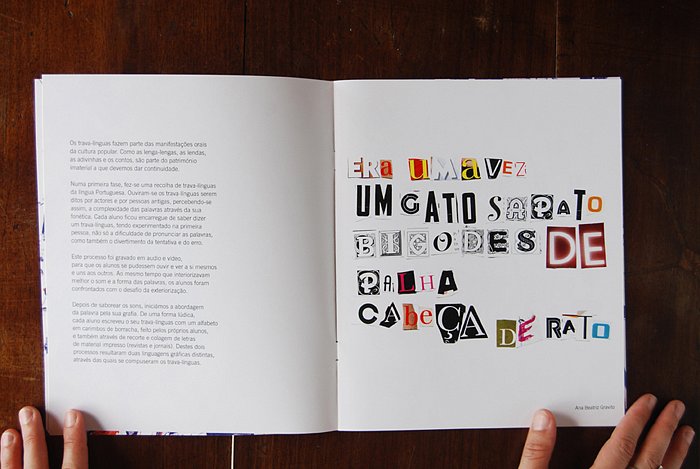 Os trava-línguas fazem parte das manifestações orais
da cultura popular. Como as lenga-lengas, as lendas,
as adivinhas e os contos, são parte do património
imaterial a que devemos dar continuidade.
Numa primeira fase, fez-se uma recolha de trava-línguas
da língua Portuguesa. Ouviram-se os trava-línguas serem
ditos por actores e por pessoas antigas, percebendo-se
assim, a complexidade das palavras através da sua
fonética. Cada aluno ficou encarregue de saber dizer
um trava-línguas, tendo experimentado na primeira
pessoa, não só a dificuldade de pronunciar as palavras,
como também o divertimento da tentativa e do erro.
Este processo foi gravado em audio e vídeo,
para que os alunos se pudessem ouvir e ver a si mesmos
e uns aos outros. Ao mesmo tempo que interiorizavam
melhor o som e a forma das palavras, os alunos foram
confrontados com o desafio da exteriorização.
Depois de saborear os sons, iniciámos a abordagem
da palavra pela sua grafia. De uma forma lúdica,
cada aluno escreveu o seu trava-línguas com um alfabeto
em carimbos de borracha, feito pelos próprios alunos,
e também através de recorte e colagem de letras
de material impresso (revistas e jornais). Destes dois
processos resultaram duas linguagens gráficas distintas,
através das quais se compuseram os trava-línguas.
ERA UMA VEZ
UM GATO SAPATO
BIGODES DE
PALHA
CAbeÇA DE RATO
Ana Beatriz Gravito